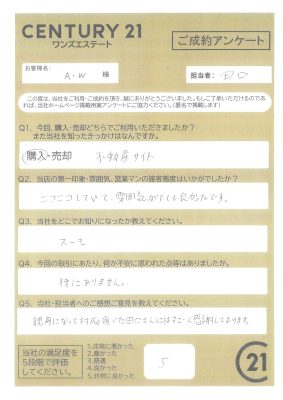 CENTURY 21
ワンズエステート
ご成約アンケート
お客様名:
A・W 様
担当者: 田口
この度は、当社をご利用・ご成約を頂き、誠にありがとうございました。もしご了承いただけるのであれば、当社ホームページ掲載用兼アンケートにご協力ください。(匿名で掲載します)
Q1. 今回、購入・売却どちらでご利用いただきましたか?
また当社を知ったきっかけはなんですか。
購入・売却 不動産サイト
Q2. 当店の第一印象・雰囲気、営業マンの接客態度はいかがでしたか?
ニコニコしていて、雰囲気がとても良かったです。
Q3. 当社をどこでお知りになったか教えてください。
スーモ
Q4. 今回の取引にあたり、何か不安に思われた点等はありましたか。
特にありません。
Q5. 当社・担当者へのご感想ご意見を教えてください。
親身になって対応頂いた田口さんにはすごく感謝しております。
当社の満足度を
5段階で評価
してください。
1.非常に悪かった
2.悪かった
3.普通
4.良かった
5.非常に良かった
5
C21